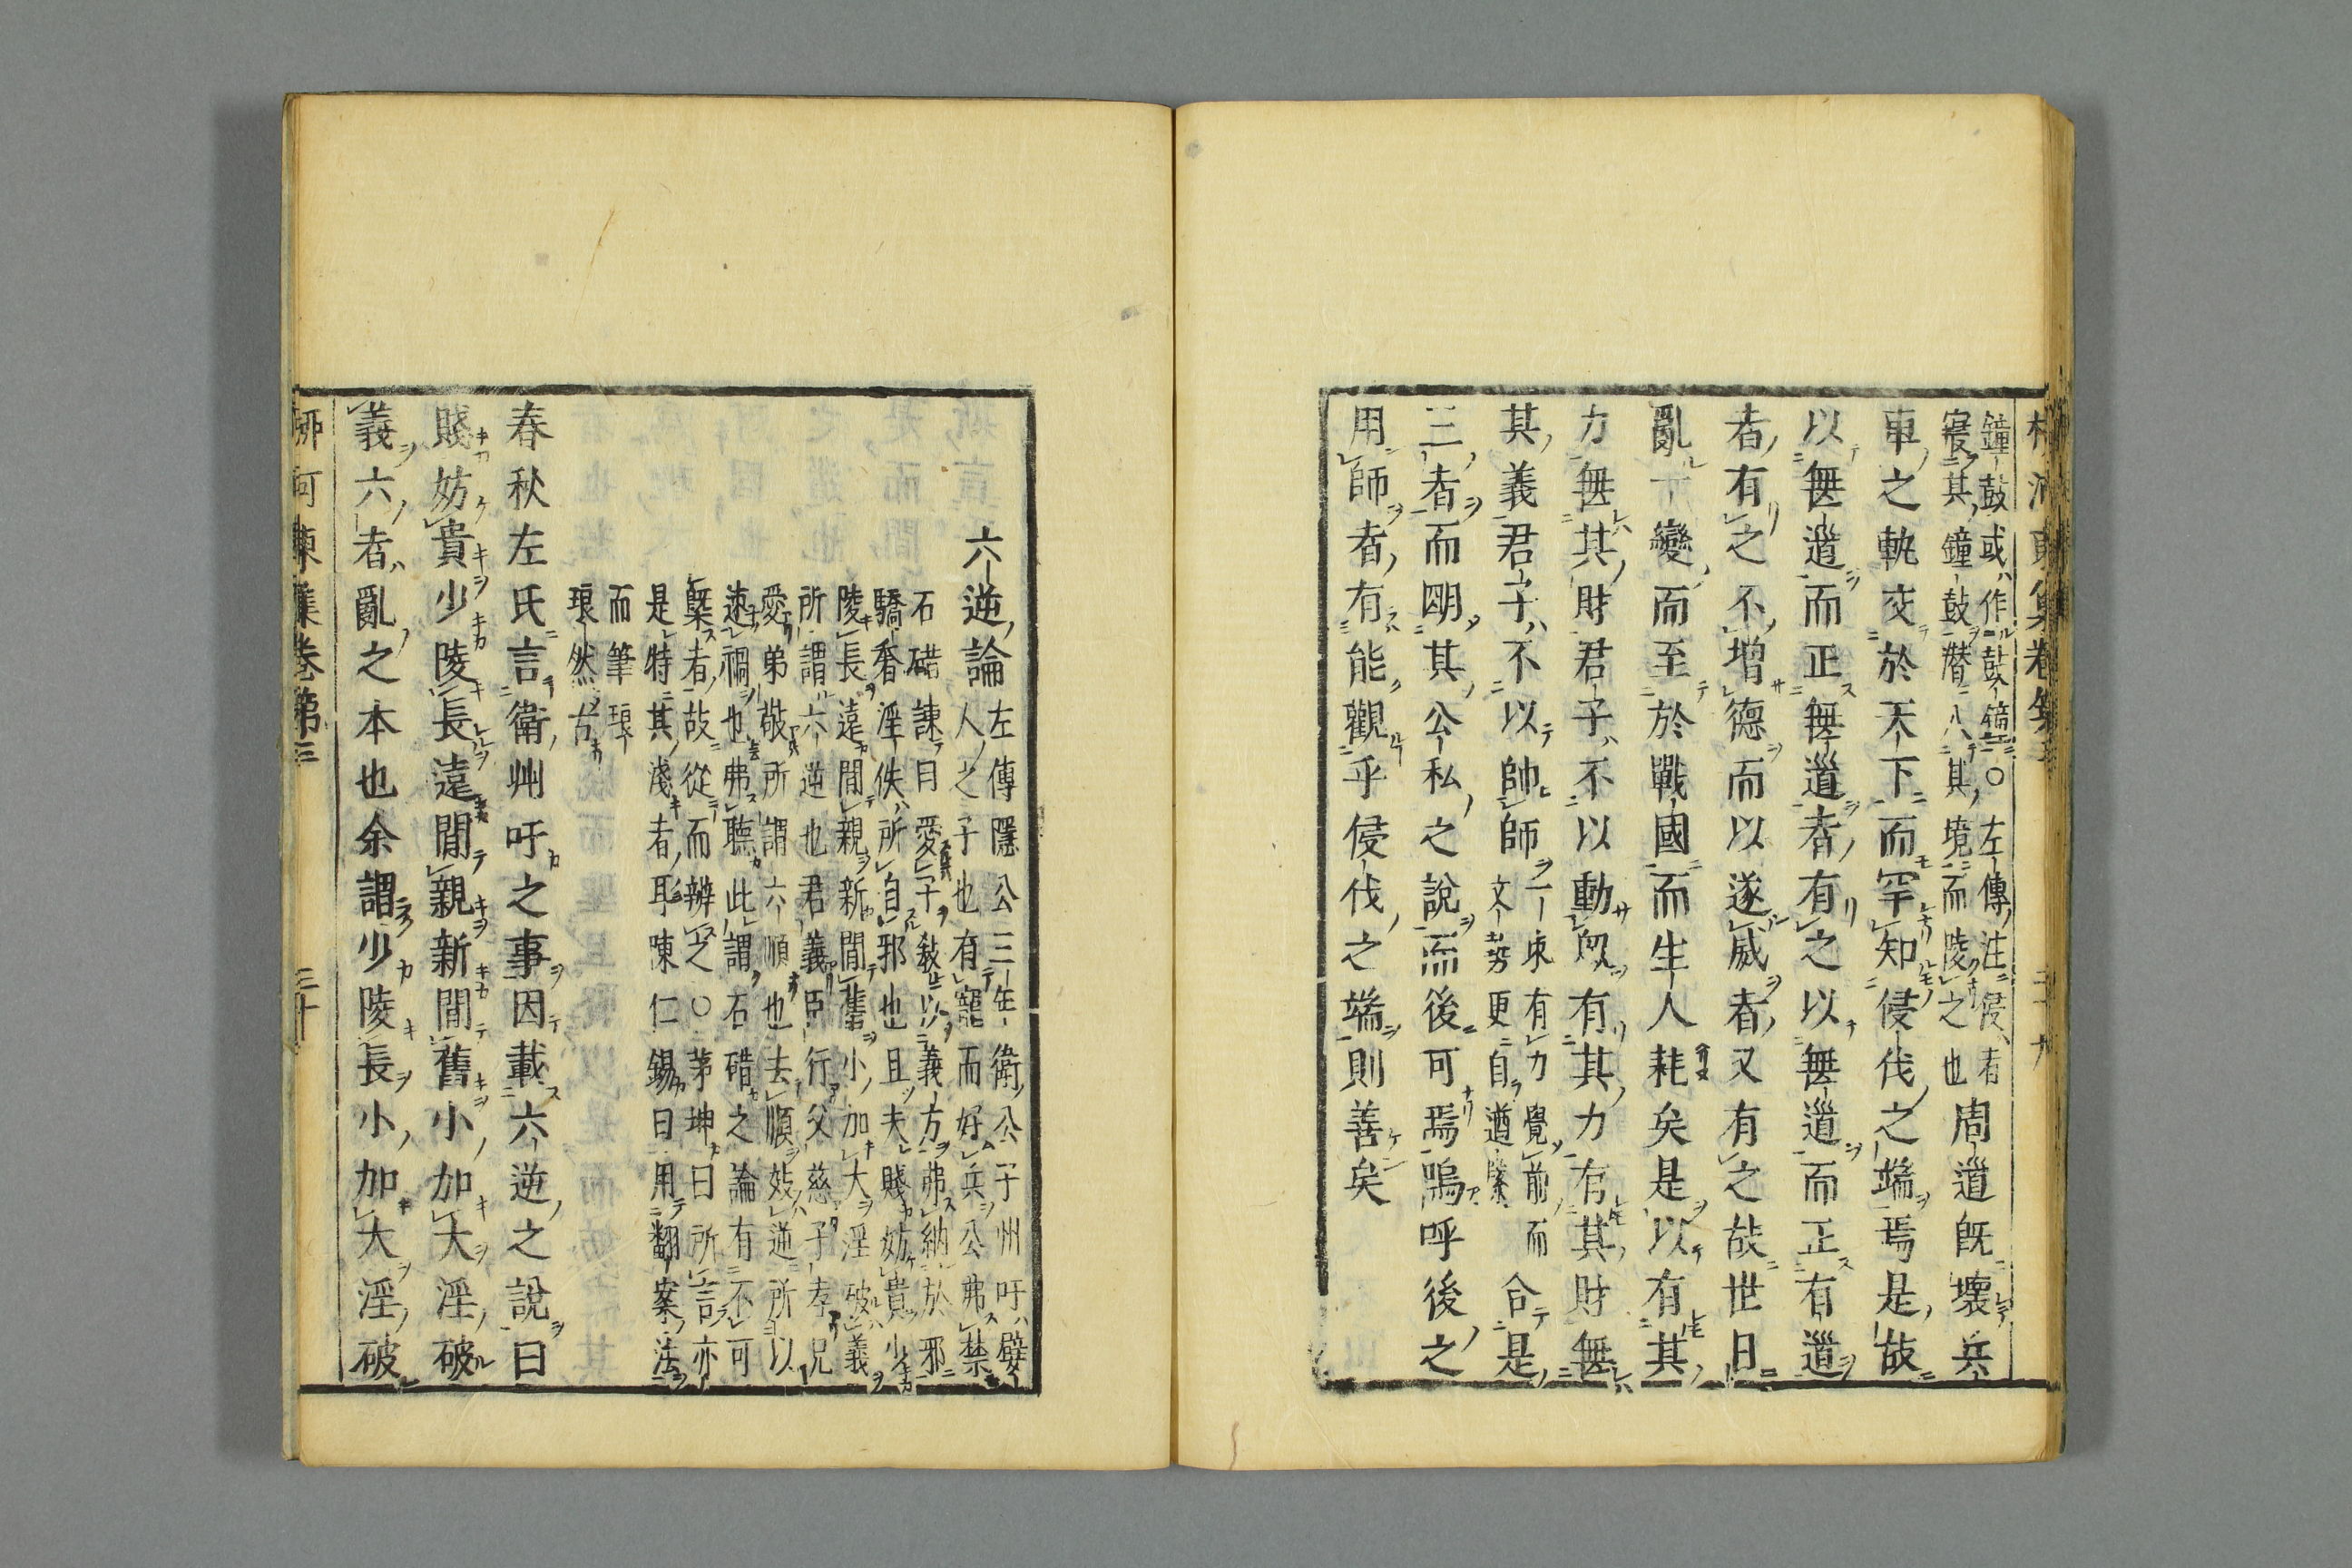 柳河東集卷第三
二十九
鐘鼓或作鼓鐘○左傳注侵者
寢其鐘鼓潛入其境而陵之也
周道既壞兵
車之軌交於天下而罕知侵伐之端焉是故
以無道而正無道者有之以無道而正有道
者有之不增德而以遂威者又有之故世日
亂一變而至於戰國而生人耗矣是以有其
力無其財君子不以動眾有其力有其財無
其義君子不以帥師
一束有力覺前而
文勢更自遒緊
合是
三者而明其公私之說而後可焉嗚呼後之
用師者有能觀乎侵伐之端則善矣
六逆論
左傳隱公三年衛公子州吁嬖
人之子也有寵而好兵公弗禁
石碏諫曰愛子敎以義方弗納於邪
驕奢淫佚所自邪也且夫賤妨貴少
陵長遠間親新間舊小加大淫破義
所謂六逆也君義臣行父慈子孝兄
愛弟敬所謂六順也去順效逆所以
速禍也弗聽此謂石碏之論有不可
槩者故從而辨之○茅坤曰所言亦
是特其淺者耳陳仁錫曰用翻案法
而筆琅
琅然古
春秋左氏言衛州吁之事因載六逆之說曰
賤妨貴少陵長遠間親新間舊小加大淫破
義六者亂之本也余謂少陵長小加大淫破
柳河東集卷第三
三十